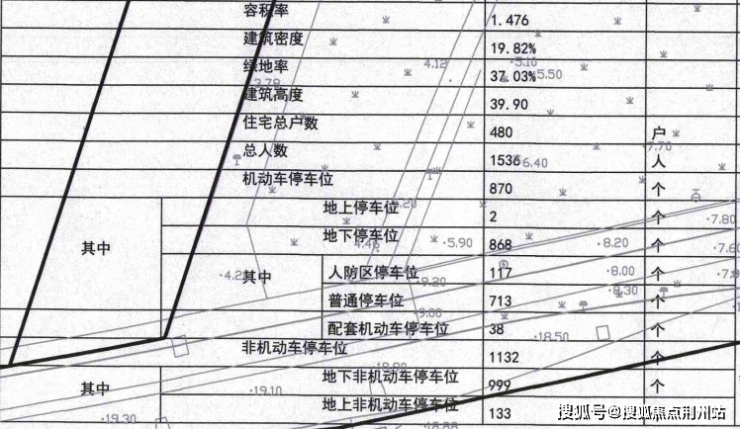 容积率 1.476
建筑密度 19.82%
4.12 5.10
绿地率 37.03% 5.50
3.78
建筑高度 39.90
住宅总户数 480 户
7.70
总人数 1536 6.40 人
机动车停车位 870 个
地上停车位 2 个
7.80
其中 地下停车位 868 个
4.46 5.90 8.20
4.2 其中 人防区停车位 117 个
9.20 8.00
普通停车位 713 个
9.00 8.30
配套机动车停车位 38 个
18.50
非机动车停车位 1132 个
其中 地下非机动车停车位 999 个
19.10
地上非机动车停车位 133
19.30 18.88
搜狐号@搜狐焦点荆州站